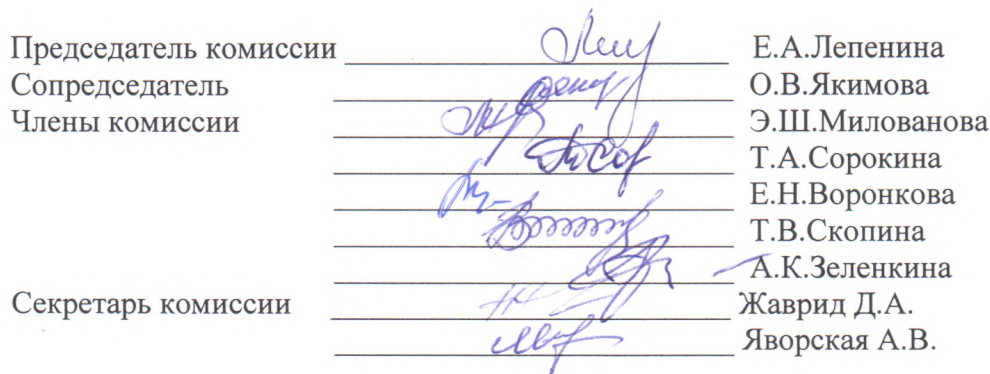 Председатель комиссии Е.А.Лепенина
Сопредседатель О.В.Якимова
Члены комиссии Э.Ш.Милованова
Т.А.Сорокина
Е.Н.Воронкова
Т.В.Скопина
А.К.Зеленкина
Секретарь комиссии Жаврид Д.А.
Яворская А.В.